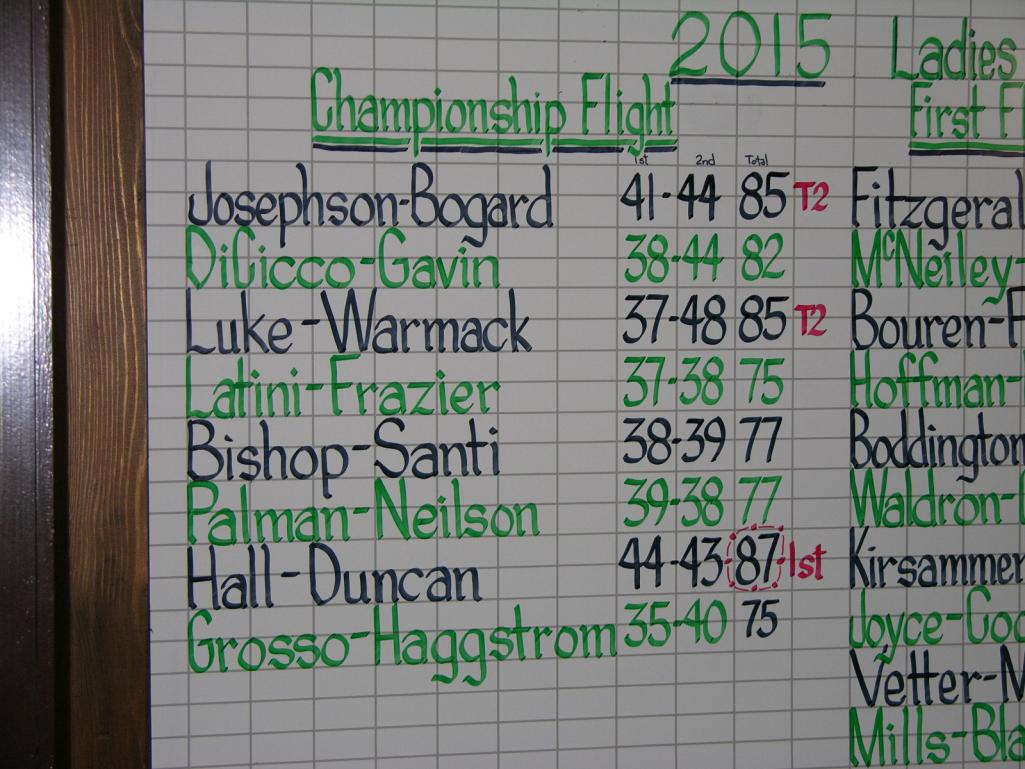 2015 Ladies
Championship Flight First
1st 2nd Total
Josephson-Bogard 41-44 85 T2
DiCicco-Gavin 38-44 82
Luke-Warmack 37-48 85 T2
Latini-Frazier 37-38 75
Bishop-Santi 38-39 77
Palman-Neilson 39-38 77
Hall-Duncan 44-43 87 1st
Grosso-Haggstrom 35-40 75
Fitzgeral
McNeiley-
Bouren-F
Hoffman-
Boddington
Waldron-
Kirsammer
Joyce-Coo
Vetter-M
Mills-Bla